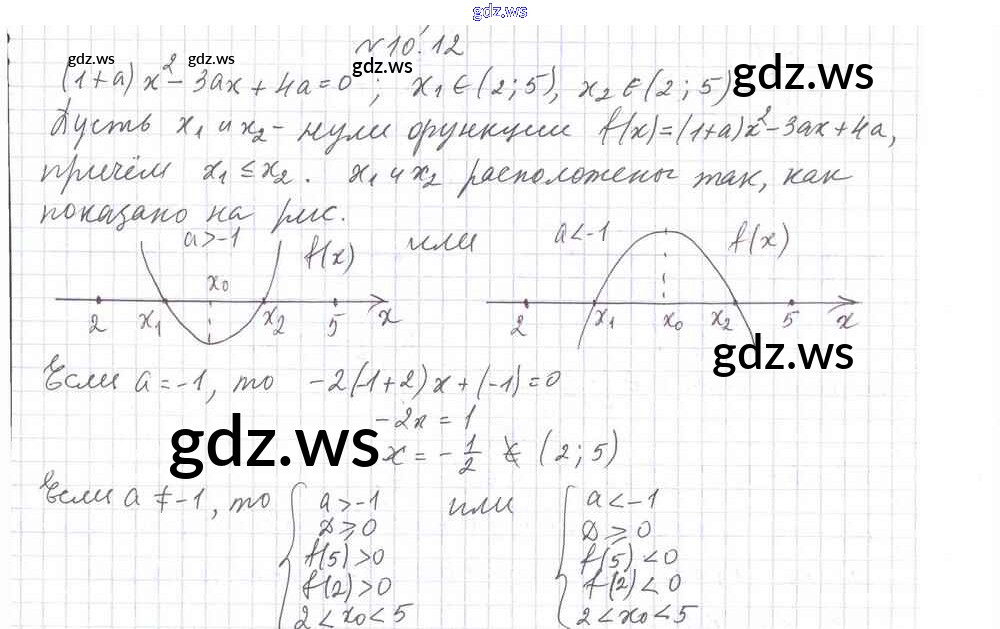 gdz.ws
№10.12
gdz.ws gdz.ws gdz.ws gdz.ws
(1+a)x² - 3ax + 4a = 0 ; x₁ ∈ (2; 5), x₂ ∈ (2; 5)
Пусть x₁ и x₂ - нули функции f(x)=(1+a)x²-3ax+4a,
причём x₁ ≤ x₂. x₁ и x₂ расположены так, как
показано на рис.
a>-1 f(x) или a<-1 f(x)
x₀
2 x₁ x₂ 5 x 2 x₁ x₀ x₂ 5 x
gdz.ws
Если a = -1, то -2(-1+2)x+(-1)=0
-2x = 1
gdz.ws
x = -1/2 ∉ (2; 5)
Если a ≠ -1, то { a > -1 или { a < -1
D ≥ 0 D ≥ 0
f(5) > 0 f(5) < 0
f(2) > 0 f(2) < 0
2 < x₀ < 5 2 < x₀ < 5